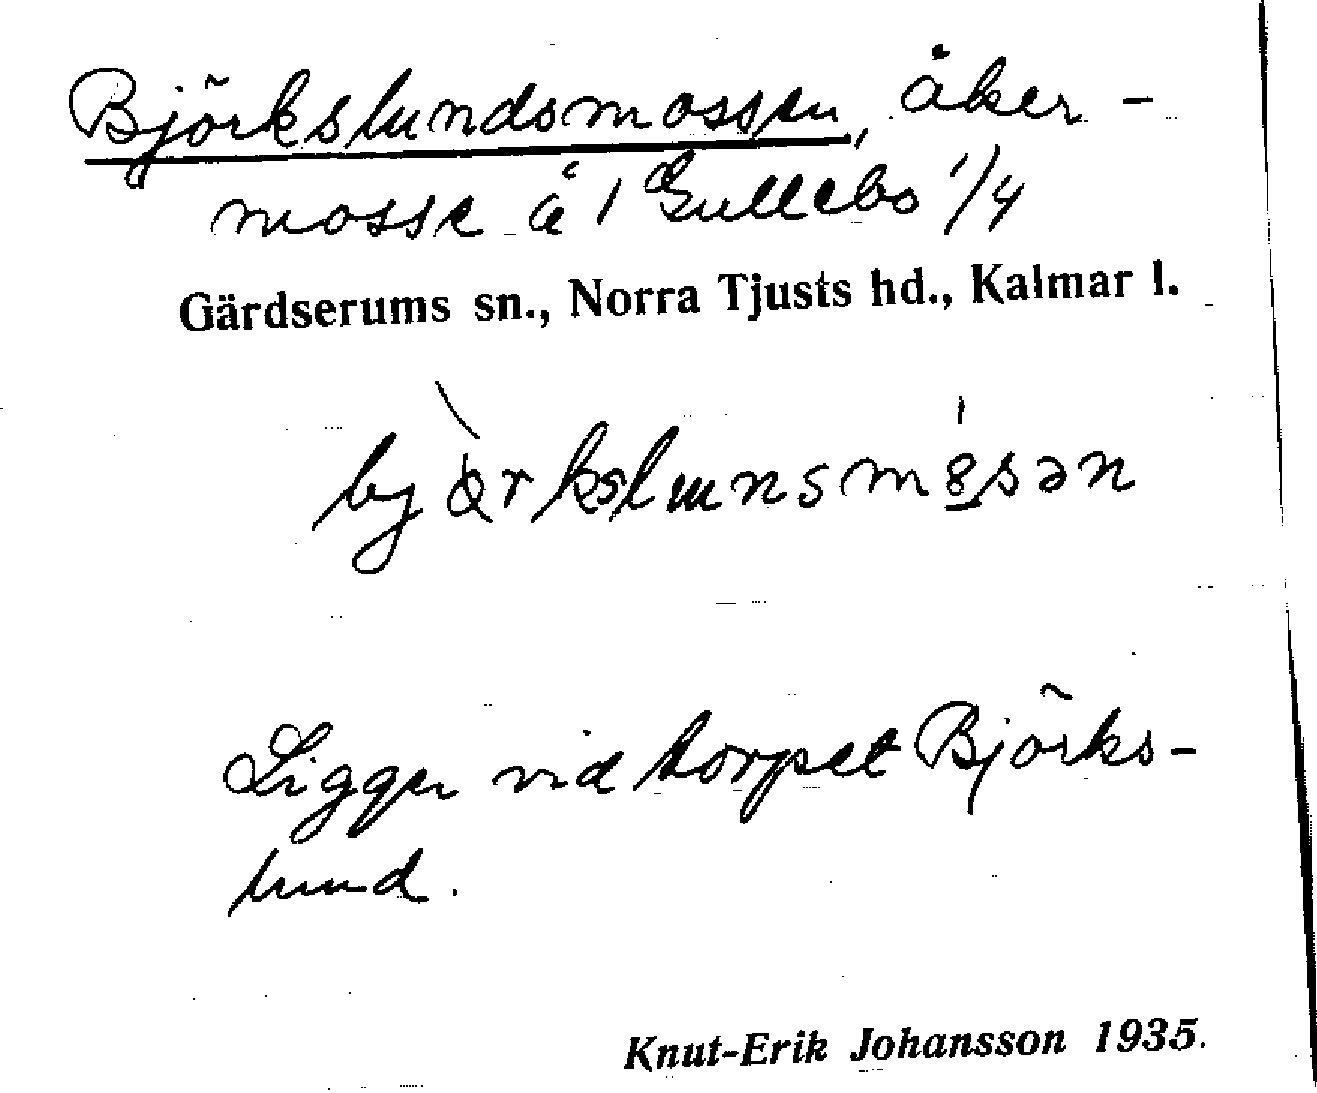 Björkslundsmossen, åker-
mosse å 1 Gullebo 1/4
Gärdserums sn., Norra Tjusts hd., Kalmar l.
Ligger vid torpet Björks-
lund.
Knut-Erik Johansson 1935.